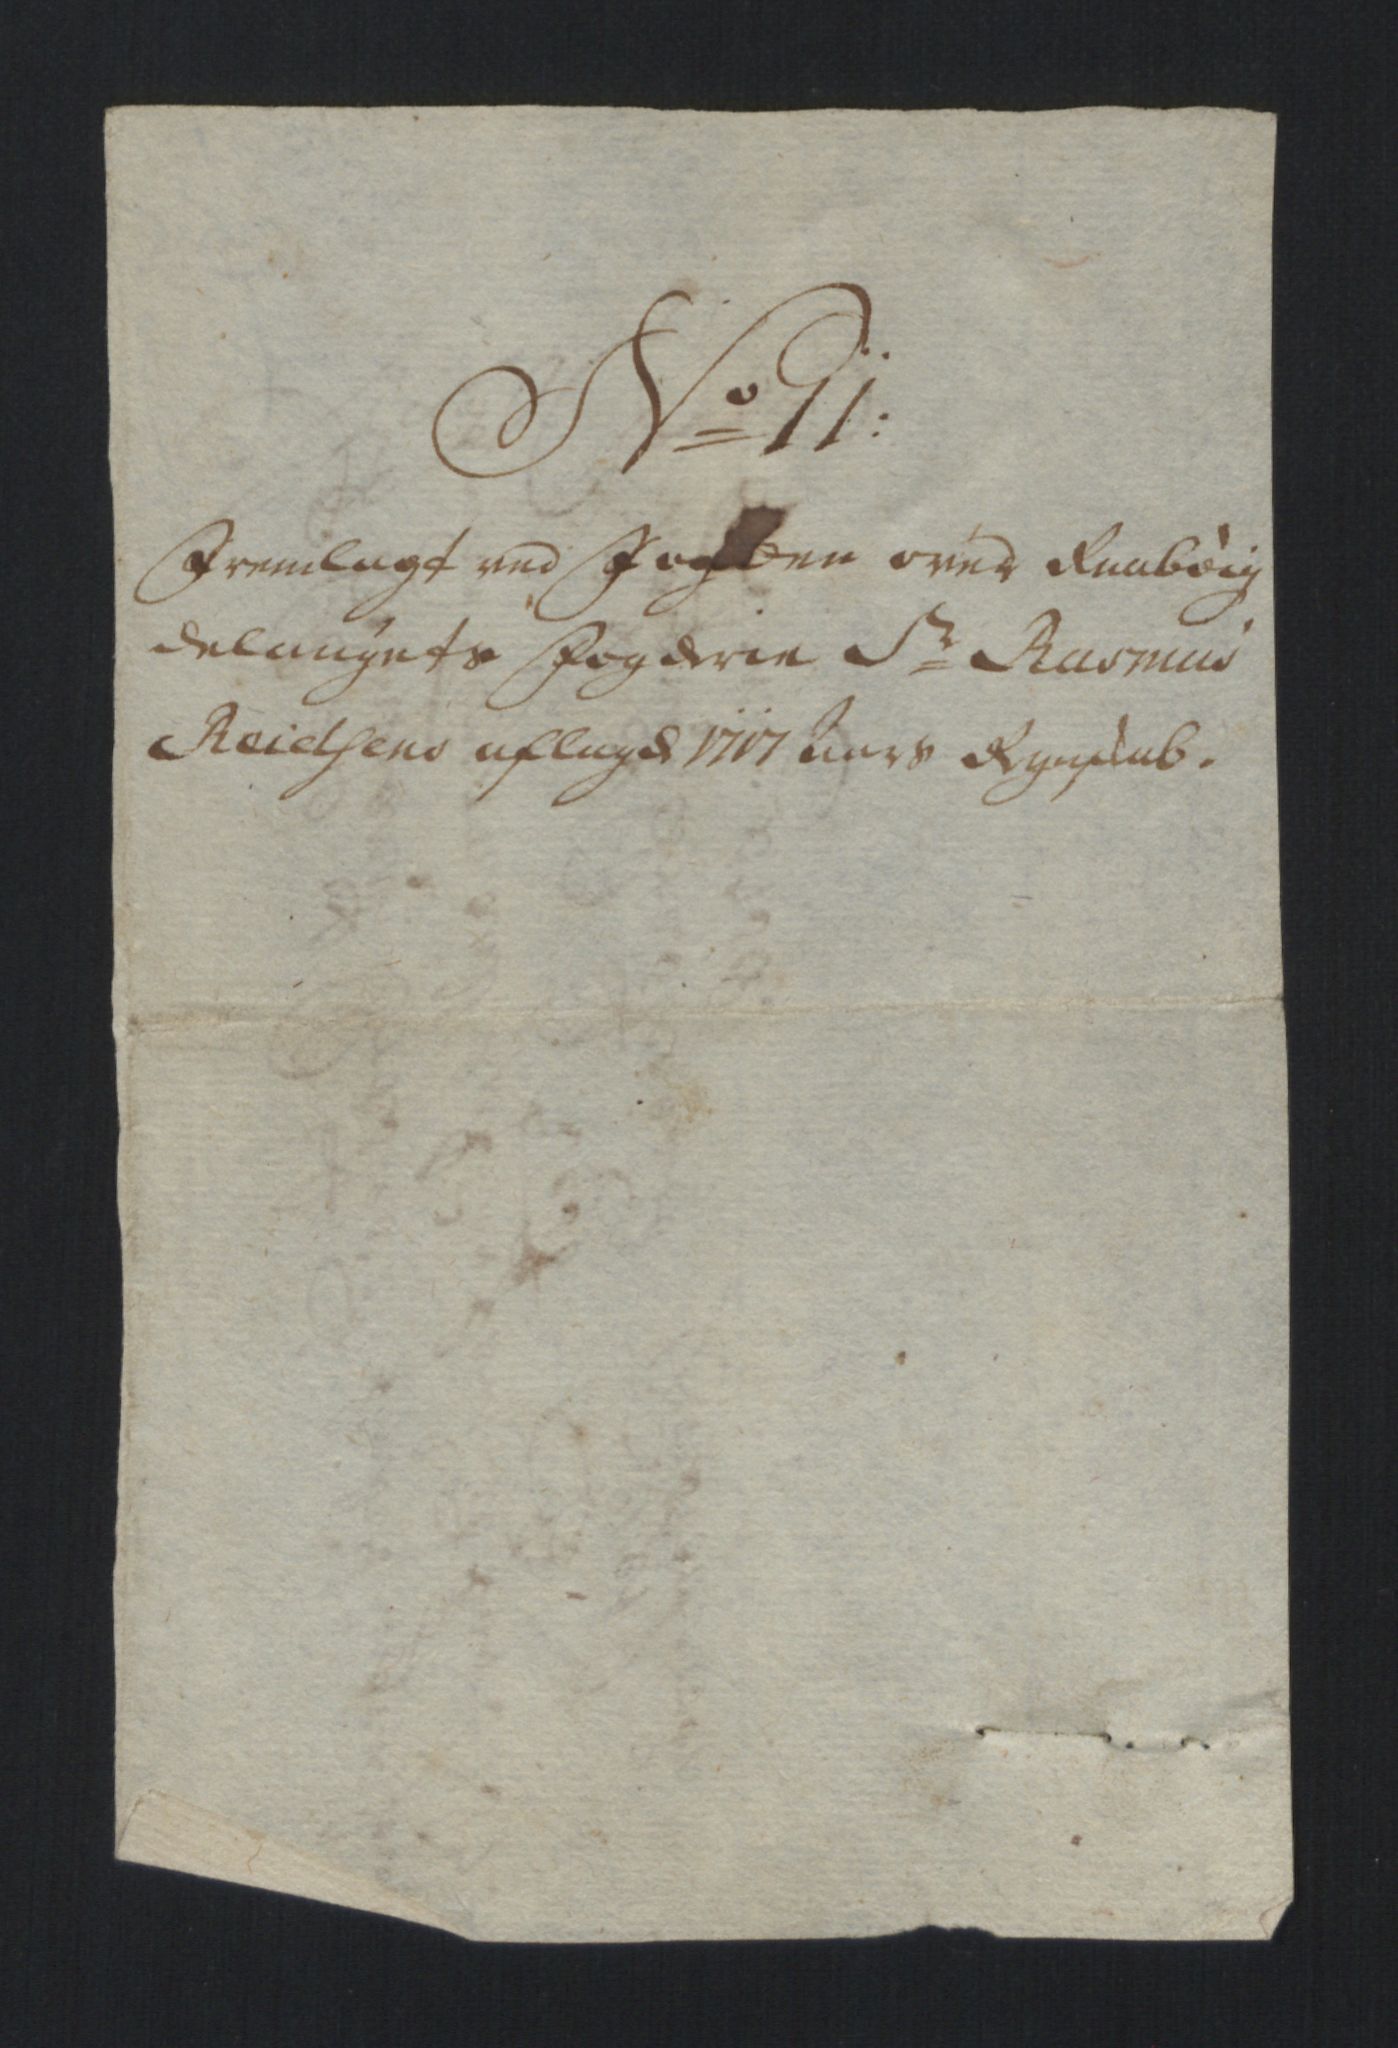 No 11:
Fremlagt ved Fogden over Raabøig
delaugets Fogderie Sr Rasmus
Reichsens aflagde 1717 Aars Regnskab.